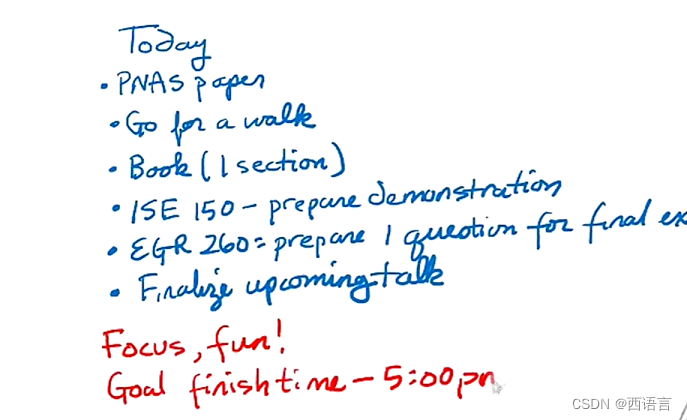 Today
• PNAS paper
• Go for a walk
• Book (1 section)
• ISE 150 - prepare demonstration
• EGR 260 = prepare 1 question for final ex
• Finalize upcoming talk
Focus, fun!
Goal finish time - 5:00 pm
CSDN @西语言